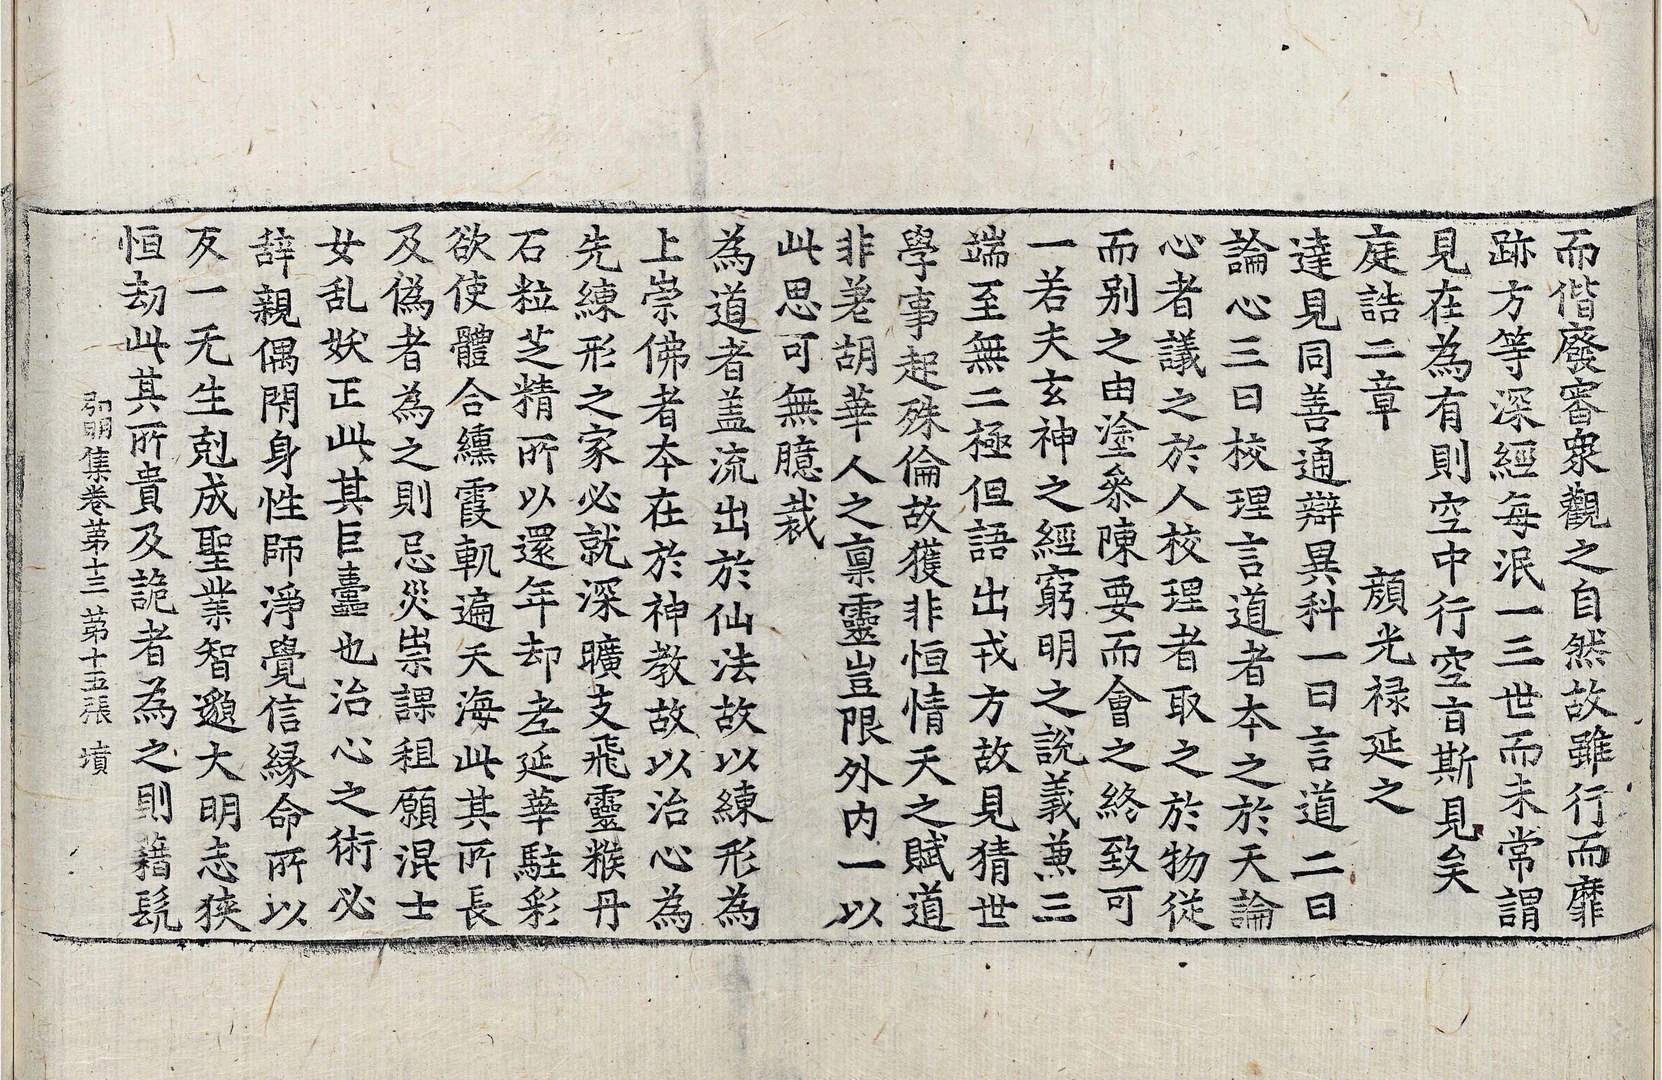 而偕廢審衆觀之自然故雖行而靡
跡方等深經每泯一三世而未常謂
見在為有則空中行空盲斯見矣
庭誥二章　顔光禄延之
達見同善通辯異科一曰言道二曰
論心三曰校理言道者夲之於天論
心者議之於人校理者取之於物從
而别之由塗叅陳要而會之終致可
一若夫玄神之經窮明之說義蒹三
端至無二極但語出戎方故見猜世
學事起殊倫故獲非恒情天之賦道
非差胡華人之禀靈豈限外内一以
此思可無臆裁
為道者盖流出於仙法故以練形為
上崇佛者夲在於神教故以治心為
先練形之家必就深曠支飛靈糇丹
石粒芝精所以還年却老延華駐彩
欲使體合纁霞軌遍天海此其所長
及偽者為之則忌災祟課租願混士
女乱妖正此其巨蠹也治心之術必
辞親偶閇身性師淨覺信縁命所以
反一无生剋成聖業智邈大明志狭
恒劫此其所貴及詭者為之則藉髡
弘明集卷第十三　第十五張　墳